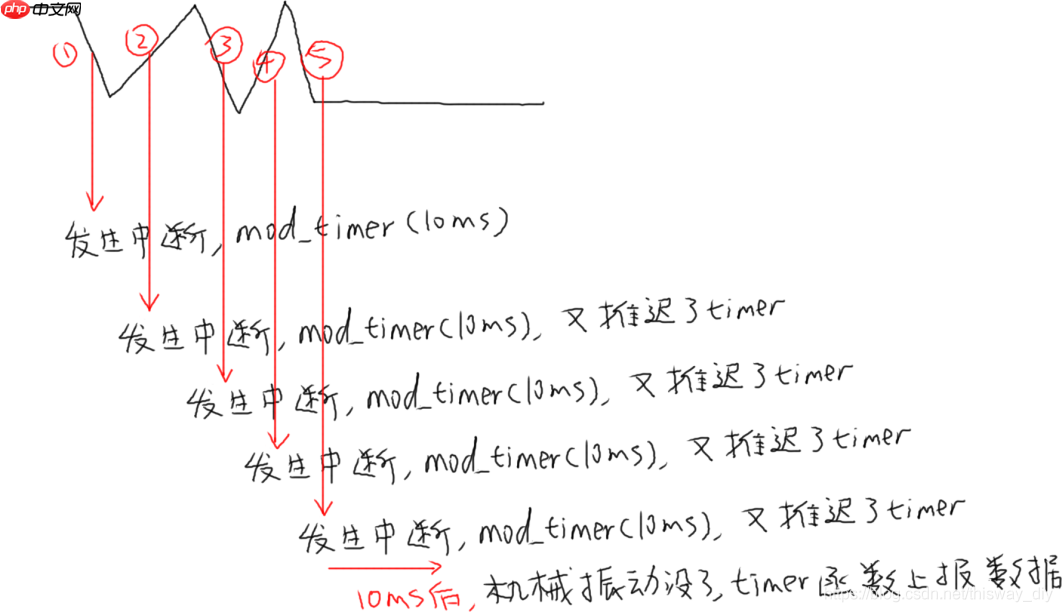 php 中文网
① ② ③ ④ ⑤
发生中断, mod_timer(10ms)
发生中断, mod_timer(10ms), 又推迟了timer
发生中断, mod_timer(10ms), 又推迟了timer
发生中断, mod_timer(10ms), 又推迟了timer
发生中断, mod_timer(10ms), 又推迟了timer
10ms后, 机械振动没了, timer函数上报数据
https://blog.csdn.net/thisway_diy